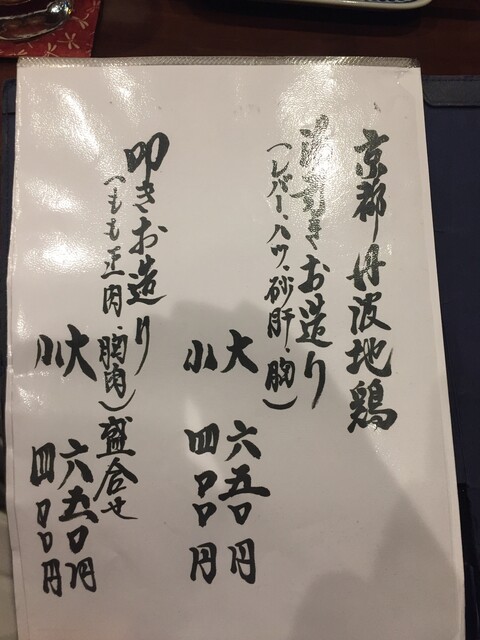 京都丹波地鶏
湯引きお造り
（レバー、ハツ、砂肝、胸）
大 六五〇円
小 四〇〇円
叩きお造り
（もも正肉、胸肉）盛合せ
大 六五〇円
小 四〇〇円